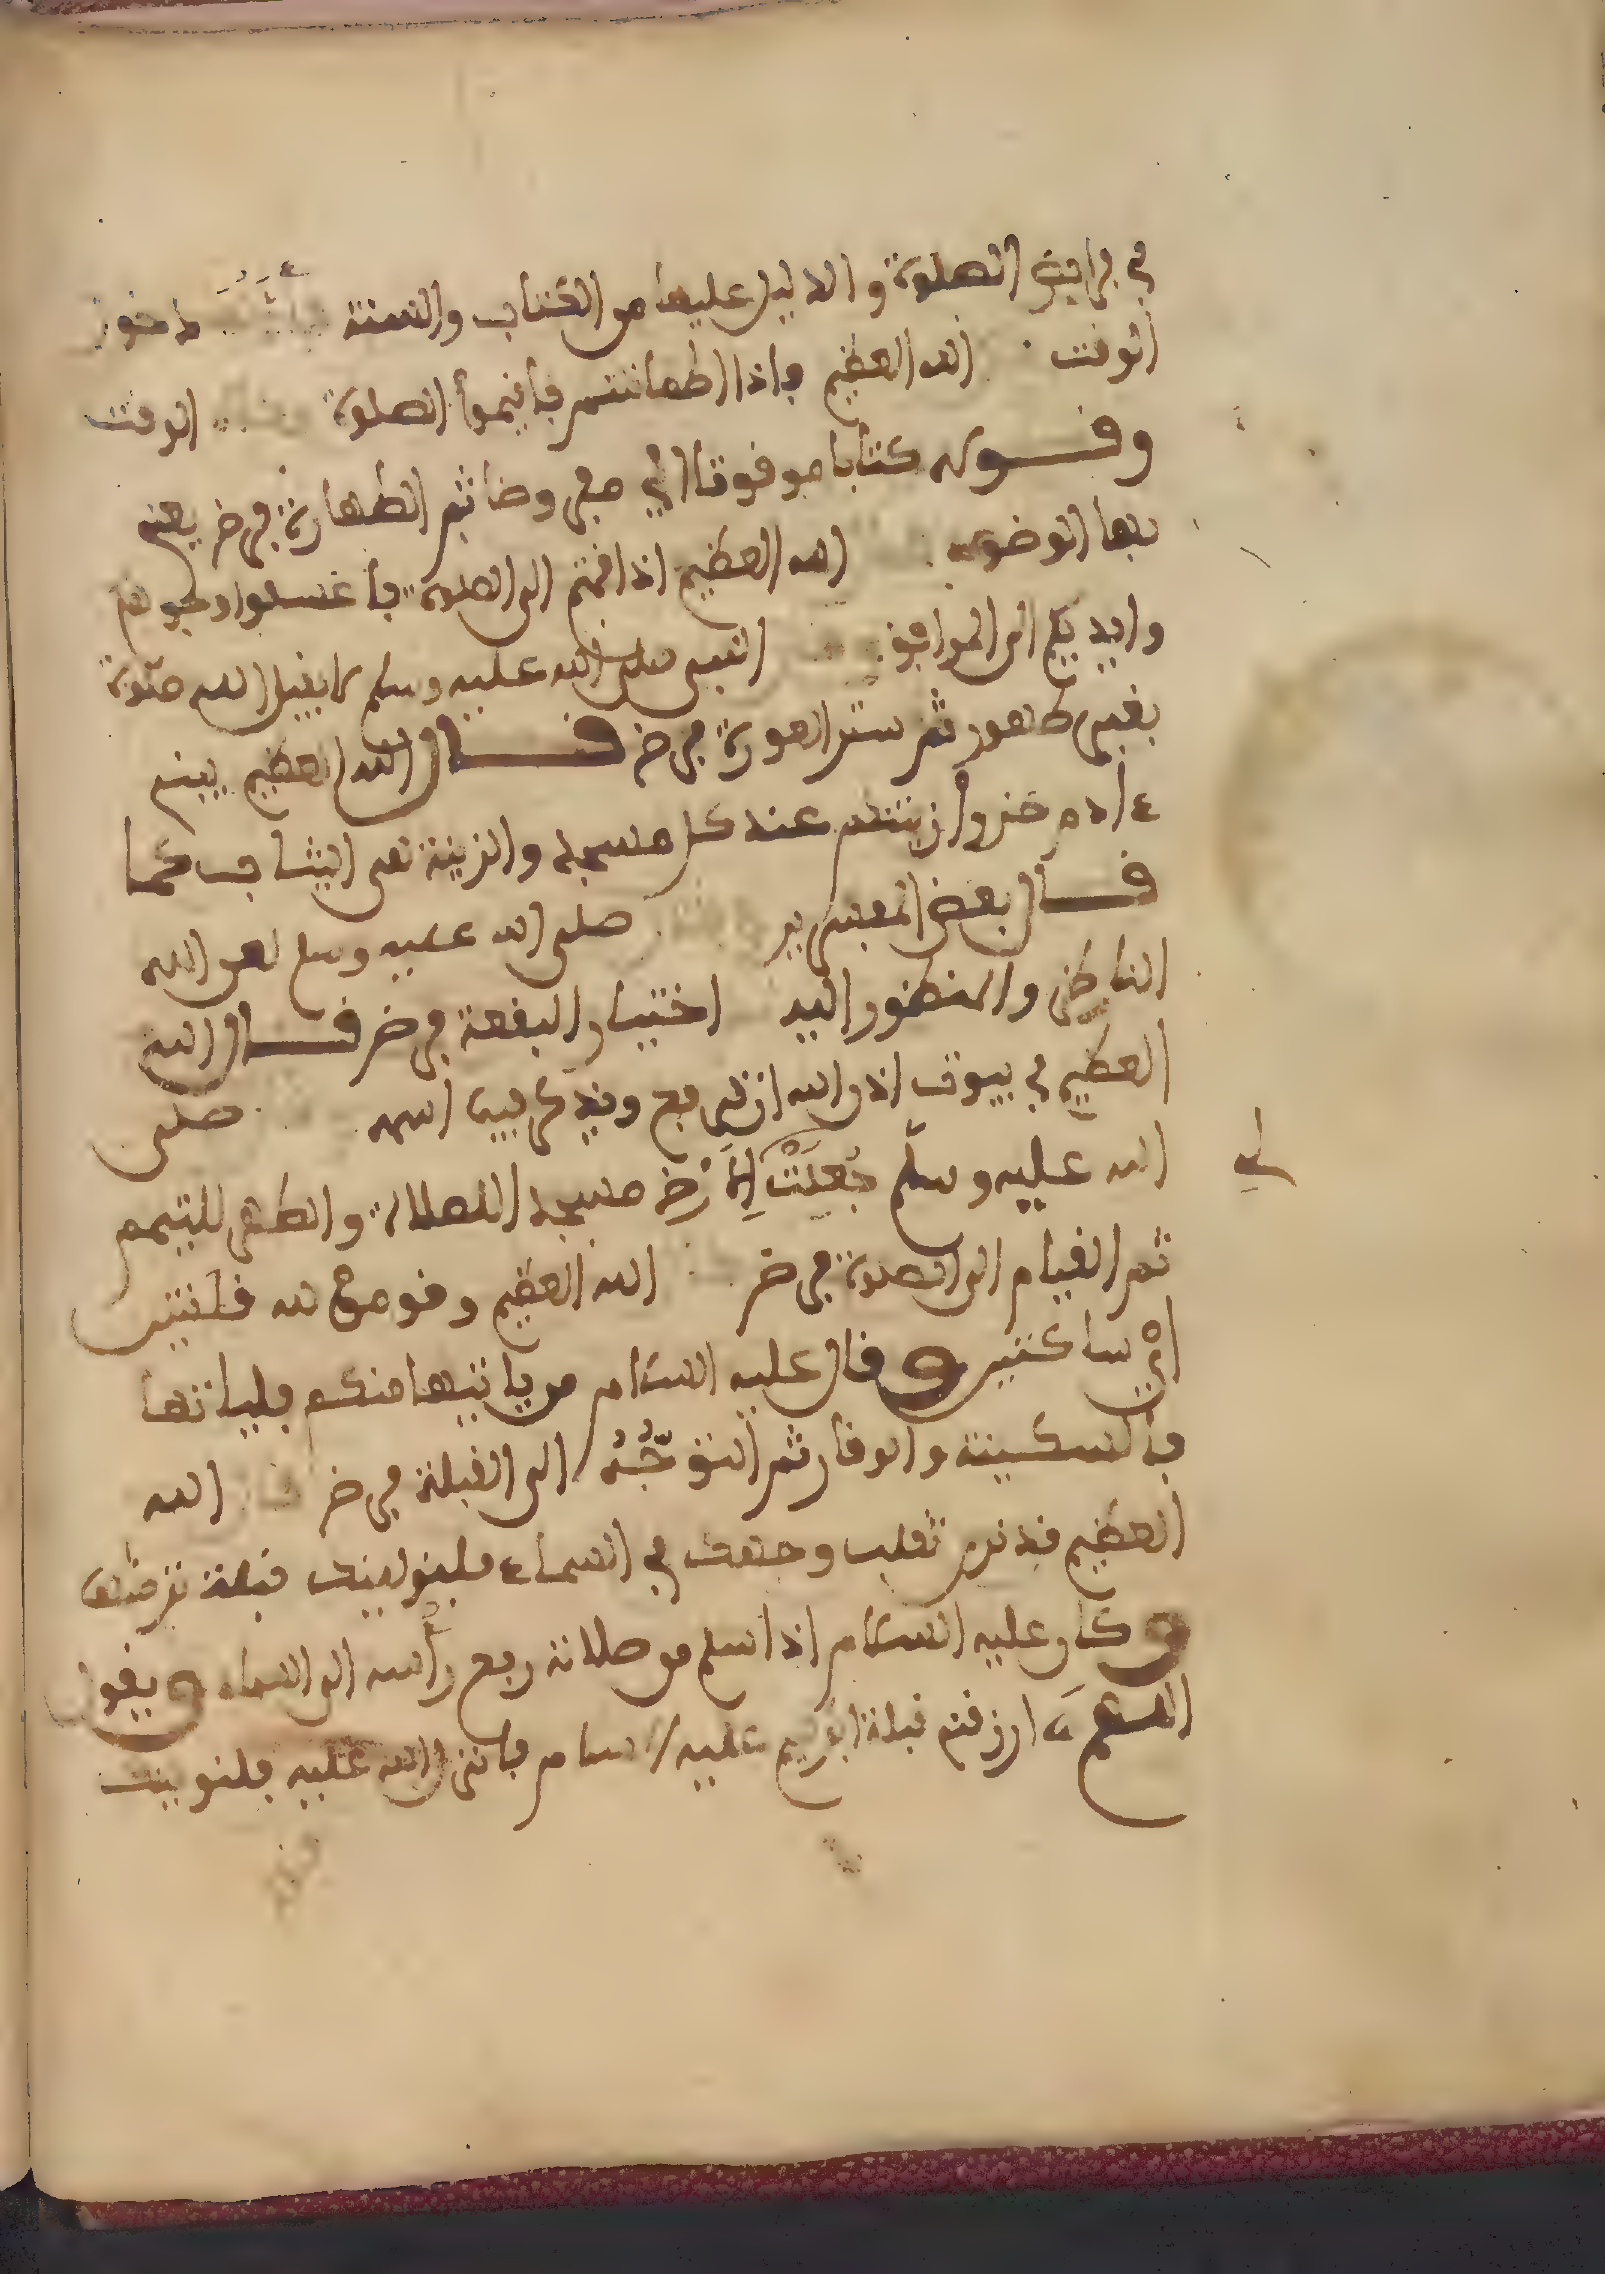 في فرايض الصلوة والدليل عليها من الكتاب والسنة دخول
الوقت الله العظيم فاذا اطماننتم فأقيموا الصلوة الوقت
وقوله كتابا موقوتا اي مفروضا ثم الطهارة فرض يعني
بها الوضوء الله العظيم اذا قمتم الى الصلوة فاغسلوا وجوهكم
وايديكم الى المرافق النبي صلى الله عليه وسلم لا يقبل الله صلوة
بغير طهور ثم ستر العورة فرض قال الله العظيم يبني
ءادم خذوا زينتكم عند كل مسجد والزينة هي الثياب كما
قال بعض المفسرين صلى الله عليه وسلم لعن الله
الناظر والمنظور اليه اختيار البقعة فرض قال الله
العظيم في بيوت اذن الله ان ترفع ويذكر فيها اسمه صلى
الله عليه وسلم جُعِلَتْ لِي الأرْض مسجدا للصلاة والطهر للتيمم
ثم القيام الى الصلوة فرض الله العظيم وقوموا لله قنتين
اي ساكتين وقال عليه السلام من ياتيها منكم فلياتها
بالسكينة والوقار ثم التوجُّهُ الى القبلة فرض الله
العظيم قد نرى تقلب وجهك في السماء فلنولينك قبلة ترضها
وكان عليه السلام اذا سلم من صلاته رفع رأسه الى السماء ويقول
اللهم ارزقني قبلة ابرهيم عليه السلام فانزل الله عليه فلنولينك